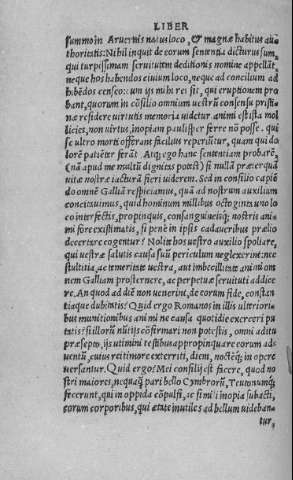 LIBER
summo in Aruernis natus loco, & magnæ habitus au
thoritatis: Nihil inquit de eorum sententia dicturus sum,
qui turpissimam seruitutem deditionis nomine appellāt,
neque hos habendos ciuium loco, neque ad concilium ad
hibēdos censeo: cum ijs mihi res sit, qui eruptionem pro
bant, quorum in cōsilio omnium uestrū consensu pristi
næ residere uirtutis memoria uidetur. animi est ista mol
licies, non uirtus, inopiam paulisper ferre nō posse. qui
se ultro morti offerant facilius reperiūtur, quam qui do
lorē patiēter ferāt. Atq; ego hanc sententiam probarē,
(nā apud me multū dignitas potest) si nullā præterquā
uitæ nostræ iacturā fieri uiderem. Sed in consilio capiē
do omnē Galliam respiciamus, quā ad nostrum auxilium
concitauimus. quid hominum millibus octoginta uno lo
co interfectis, propinquis, consanguineisq; nostris ani-
mi fore existimatis, si penè in ipsis cadaueribus prælio
decertare cogentur? Nolite hos uestro auxilio spoliare,
qui uestræ salutis causa suū periculum neglexerint: nec
stultitia, ac temeritate uestra, aut imbecillitate animi om
nem Galliam prosternere, ac perpetuæ seruituti addice
re. An quod ad diē non uenerint, de eorum fide, constan
tiaque dubitatis? Quid ergo Romanos in illis ulteriori=
bus munitionibus animi ne causa quotidie exerceri pu
tatis? si illorū nūtijs cōfirmari non potestis, omni aditu
præsepto, ijs utimini testibus appropinquare eorum ad=
uentū, cuius rei timore exterriti, diem, noctēq; in opere
uersantur. Quid ergo? Mei consilij est facere, quod no
stri maiores, nequaq̄ pari bello Cymbrorū, Teutonumq;
fecerunt, qui in oppida cōpulsi, ac simili inopia subacti,
eorum corporibus, qui ætate inutiles ad bellum uideban
tur,